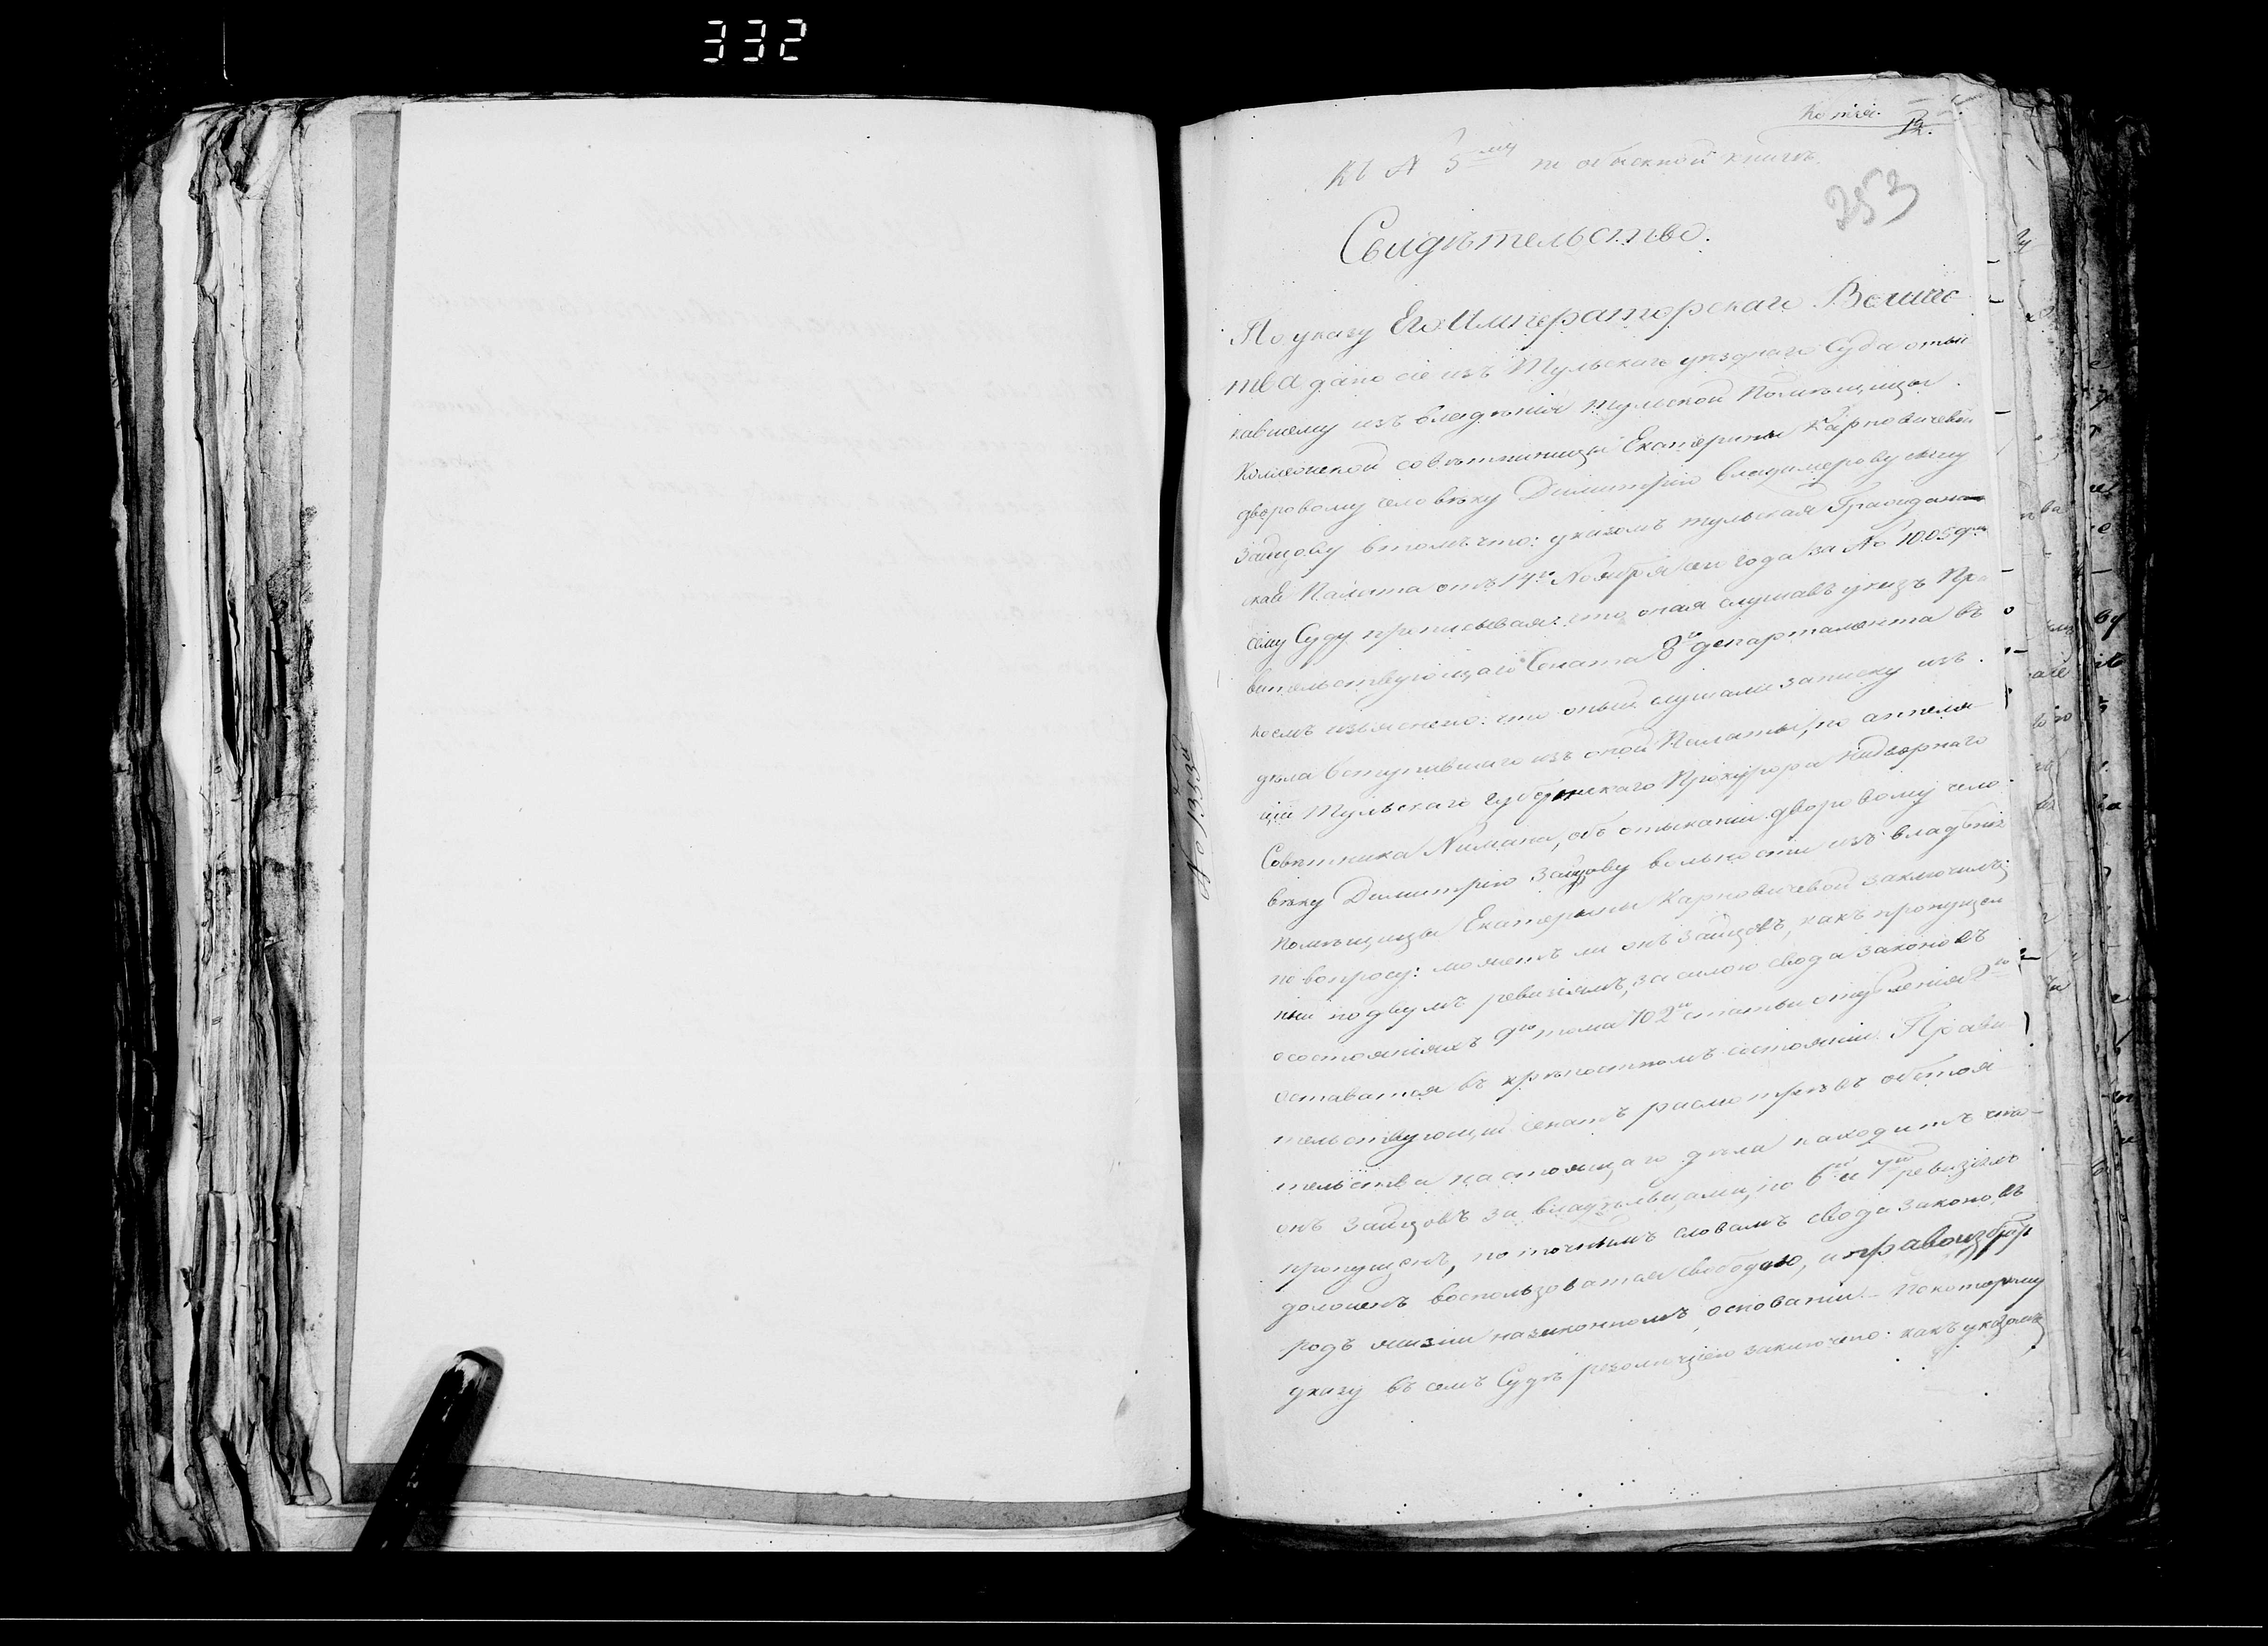 332
Копія.
Къ № 5му по обыскной книгѣ.
253
Свидѣтельство.
По указу Его Императорскаго Величес
тва дано сіе изъ Тульскаго уѣзднаго Суда отыс
кавшему изъ владѣнія тульской Помѣщицы
Коллежской совѣтницы Екатерины Карповичевой
дворовому человѣку Димитрію Владимерову сыну
Зайцову втомъ что: указомъ тульская Граждан
ская Палата отъ 14го Ноября сего года за № 1005
сему Суду прописывая: что оная слушавъ указъ Пра
вительствующаго Сената 8го департамента въ
коемъ изъяснено: что оный слушали записку изъ
дѣла вступившаго изъ оной Палаты, по аппеля
ціи Тульскаго Губернскаго Прокурора Надворнаго
Совѣтника Нимана, объ отыскании дворовому чело
вѣку Димитрію Зайцову вольности изъ владѣнія
помѣщицы Екатерины Карповичевой заключилъ:
по вопросу: можетъ ли онъ Зайцовъ, какъ пропущен
ный по двумъ ревизіямъ, за силою свода законовъ
о состояніяхъ 9го тома 702й статьи
оставатся въ крѣпостномъ состояніи. Прави
тельствующій сенатъ расмотрѣвъ обстоя
тельства настоящаго дѣла находитъ что
онъ Зайцовъ за владѣльцами, по 6й и 7й ревизіямъ
пропущенъ, по точнымъ словамъ свода законовъ
долженъ воспользоватся свободою, и право избрать
родъ жизни на законномъ основании. Покоторому
указу въ семъ Судѣ резолюціею заключено: какъ указомъ
№ 1353й